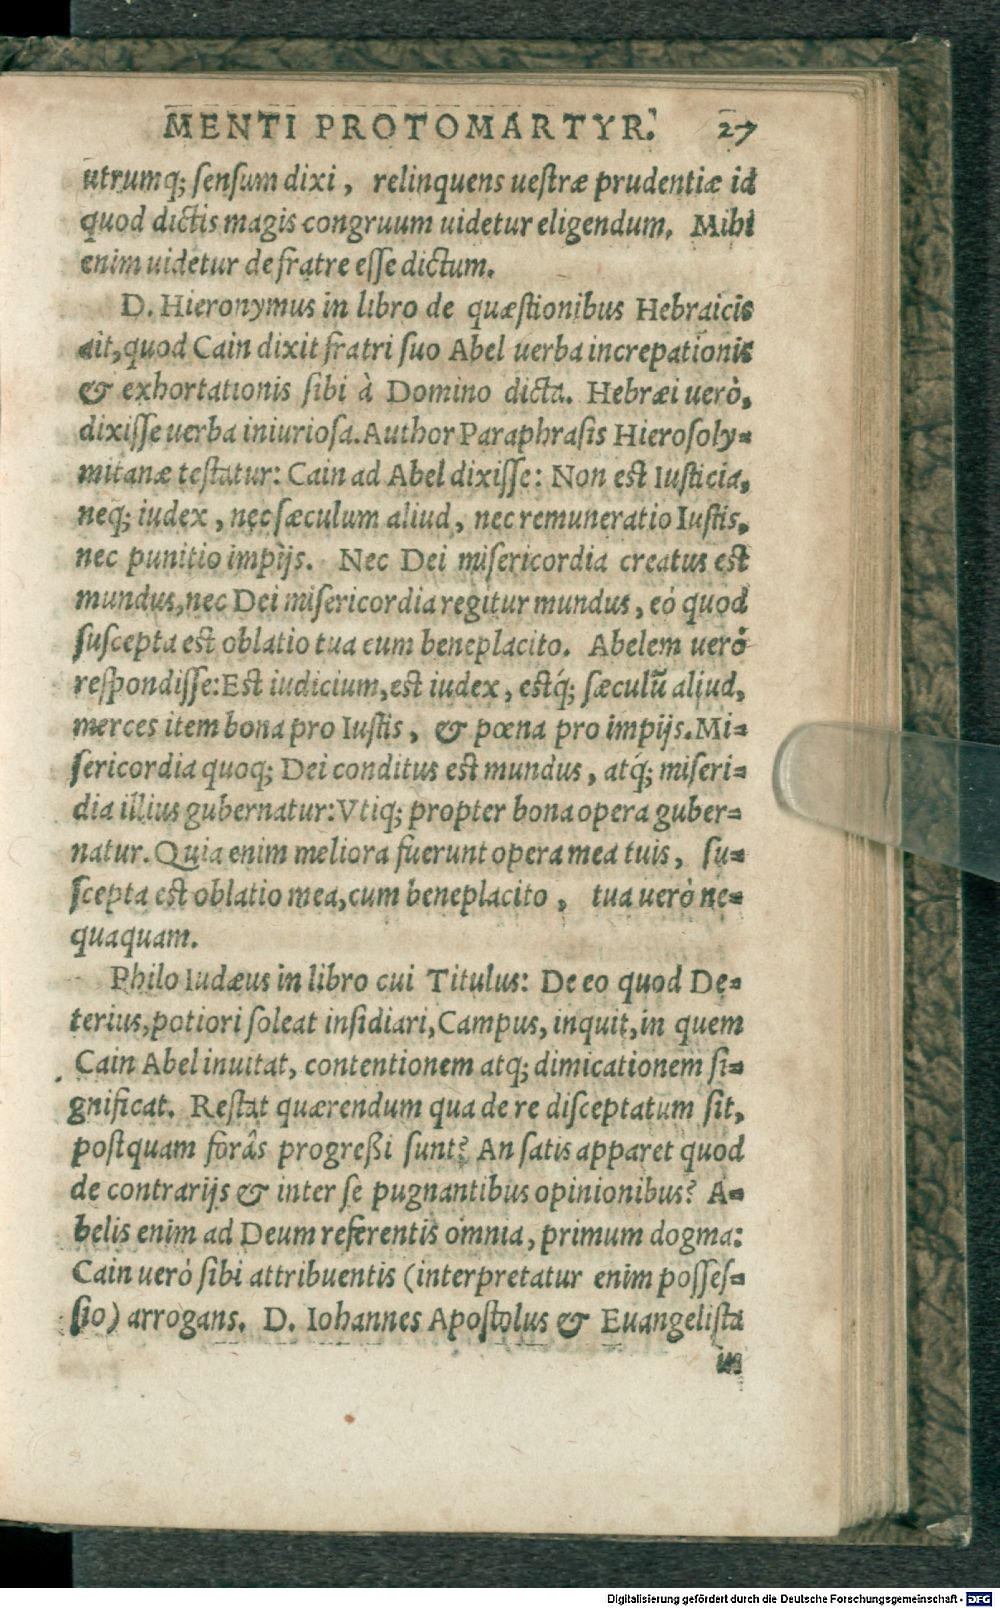 MENTI PROTOMARTYR. 27
utrumq; sensum dixi, relinquens uestræ prudentiæ id
quod dictis magis congruum uidetur eligendum. Mihi
enim uidetur de fratre esse dictum.
D. Hieronymus in libro de quæstionibus Hebraicis
ait, quod Cain dixit fratri suo Abel uerba increpationis
& exhortationis sibi à Domino dicta. Hebræi uerò,
dixisse uerba iniuriosa. Author Paraphrasis Hierosoly=
mitanæ testatur: Cain ad Abel dixisse: Non est Iusticia,
neq; iudex, nec sæculum aliud, nec remuneratio Iustis,
nec punitio impijs. Nec Dei misericordia creatus est
mundus, nec Dei misericordia regitur mundus, eò quod
suscepta est oblatio tua cum beneplacito. Abelem uerò
respondisse: Est iudicium, est iudex, estq́; sæculū aliud,
merces item bona pro Iustis, & pœna pro impijs. Mi=
sericordia quoq; Dei conditus est mundus, atq́; miseri=
dia illius gubernatur: Vtiq; propter bona opera guber=
natur. Quia enim meliora fuerunt opera mea tuis, su=
scepta est oblatio mea, cum beneplacito, tua uerò ne=
quaquam.
Philo Iudæus in libro cui Titulus: De eo quod De=
terius, potiori soleat insidiari, Campus, inquit, in quem
Cain Abel inuitat, contentionem atq; dimicationem si=
gnificat. Restat quærendum qua de re disceptatum sit,
postquam forâs progreßi sunt? An satis apparet quod
de contrarijs & inter se pugnantibus opinionibus? A=
belis enim ad Deum referentis omnia, primum dogma:
Cain uerò sibi attribuentis (interpretatur enim posses=
sio) arrogans. D. Iohannes Apostolus & Euangelista
in
Digitalisierung gefördert durch die Deutsche Forschungsgemeinschaft - DFG